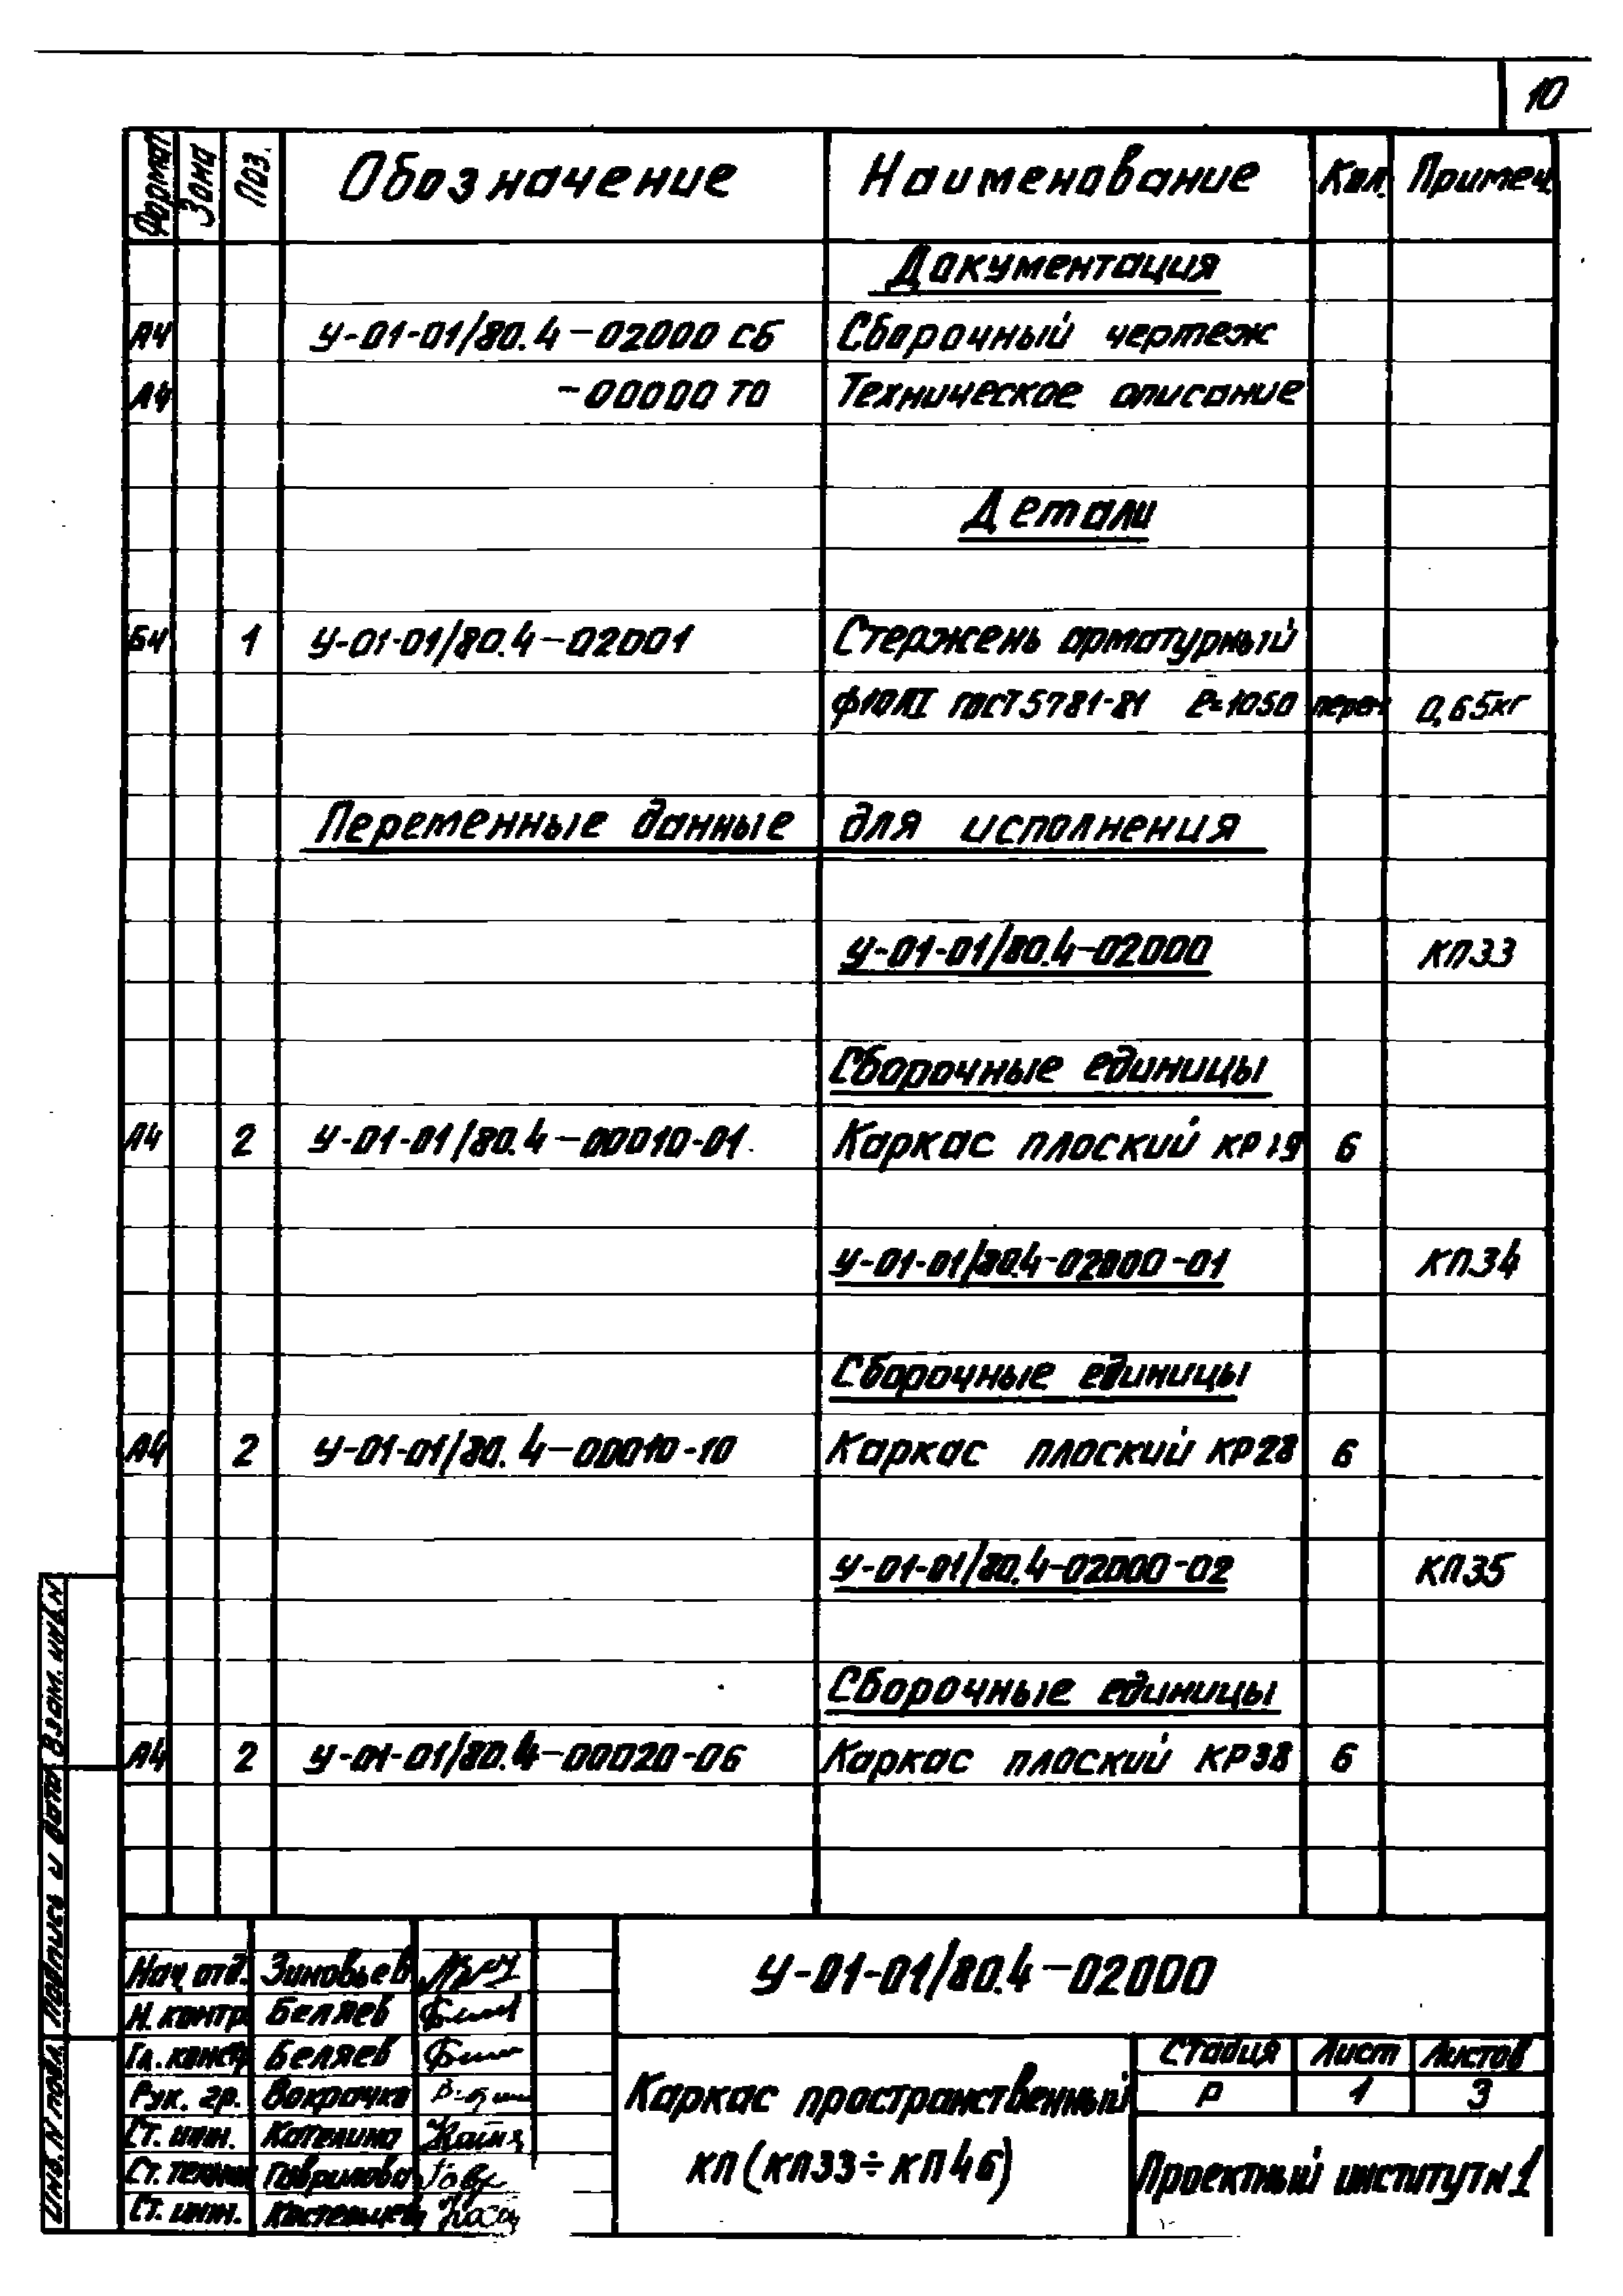 10
Формат Зона Поз. Обозначение Наименование Кол. Примеч.
Документация
А4 У-01-01/80.4-02000 СБ Сборочный чертеж
А4 -00000 ТО Техническое описание
Детали
БЧ 1 У-01-01/80.4-02001 Стержень арматурный
ф10АI ГОСТ 5781-81 ℓ=1050 0,65кг
Переменные данные для исполнения
У-01-01/80.4-02000 КП33
Сборочные единицы
А4 2 У-01-01/80.4-00010-01 Каркас плоский КР19 6
У-01-01/80.4-02000-01 КП34
Сборочные единицы
А4 2 У-01-01/80.4-00010-10 Каркас плоский КР28 6
У-01-01/80.4-02000-02 КП35
Сборочные единицы
А4 2 У-01-01/80.4-00020-06 Каркас плоский КР38 6
Инв. N подл. Подпись и дата Взам. инв. N
Нач. отд. Зиновьев
Н. контр. Беляев
Гл. констр. Беляев
Рук. гр. Вокрачко
Ст. инж. Котелина
Ст. техник Гаврилова
Ст. инж.
У-01-01/80.4-02000
Каркас пространственный
КП (КП33÷КП46)
Стадия Лист Листов
Р 1 3
Проектный институт N1